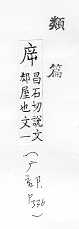 類篇
㡿 昌石切說文
郤屋也文一
(广部, P.326)